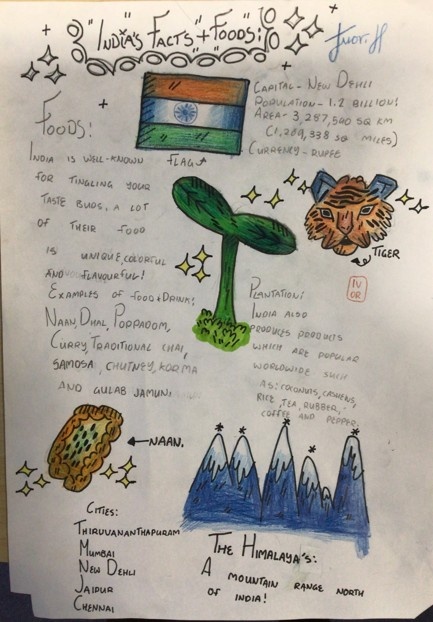 "India's Facts + Foods:"
Ivor. H
Capital - New Dehli
Population - 1.2 Billion!
Area - 3,287,590 sq km
(1,269,338 sq miles)
Currency - Rupee
Flag
Foods:
India is well-known
for tingling your
taste buds, a lot
of their food
is unique, colorful
and flavourful!
Examples of food + drink:
Naan, Dhal, Poppadom,
Curry, Traditional chai,
Samosa, Chutney, Korma
and Gulab Jamun!
Tiger
IV
OR
Plantation:
India also
produces products
which are popular
worldwide such
as: coconuts, cashews,
rice, tea, rubber,
coffee and pepper.
Naan.
Cities:
Thiruvananthapuram
Mumbai
New Dehli
Jaipur
Chennai
The Himalaya's:
A mountain range north
of India!